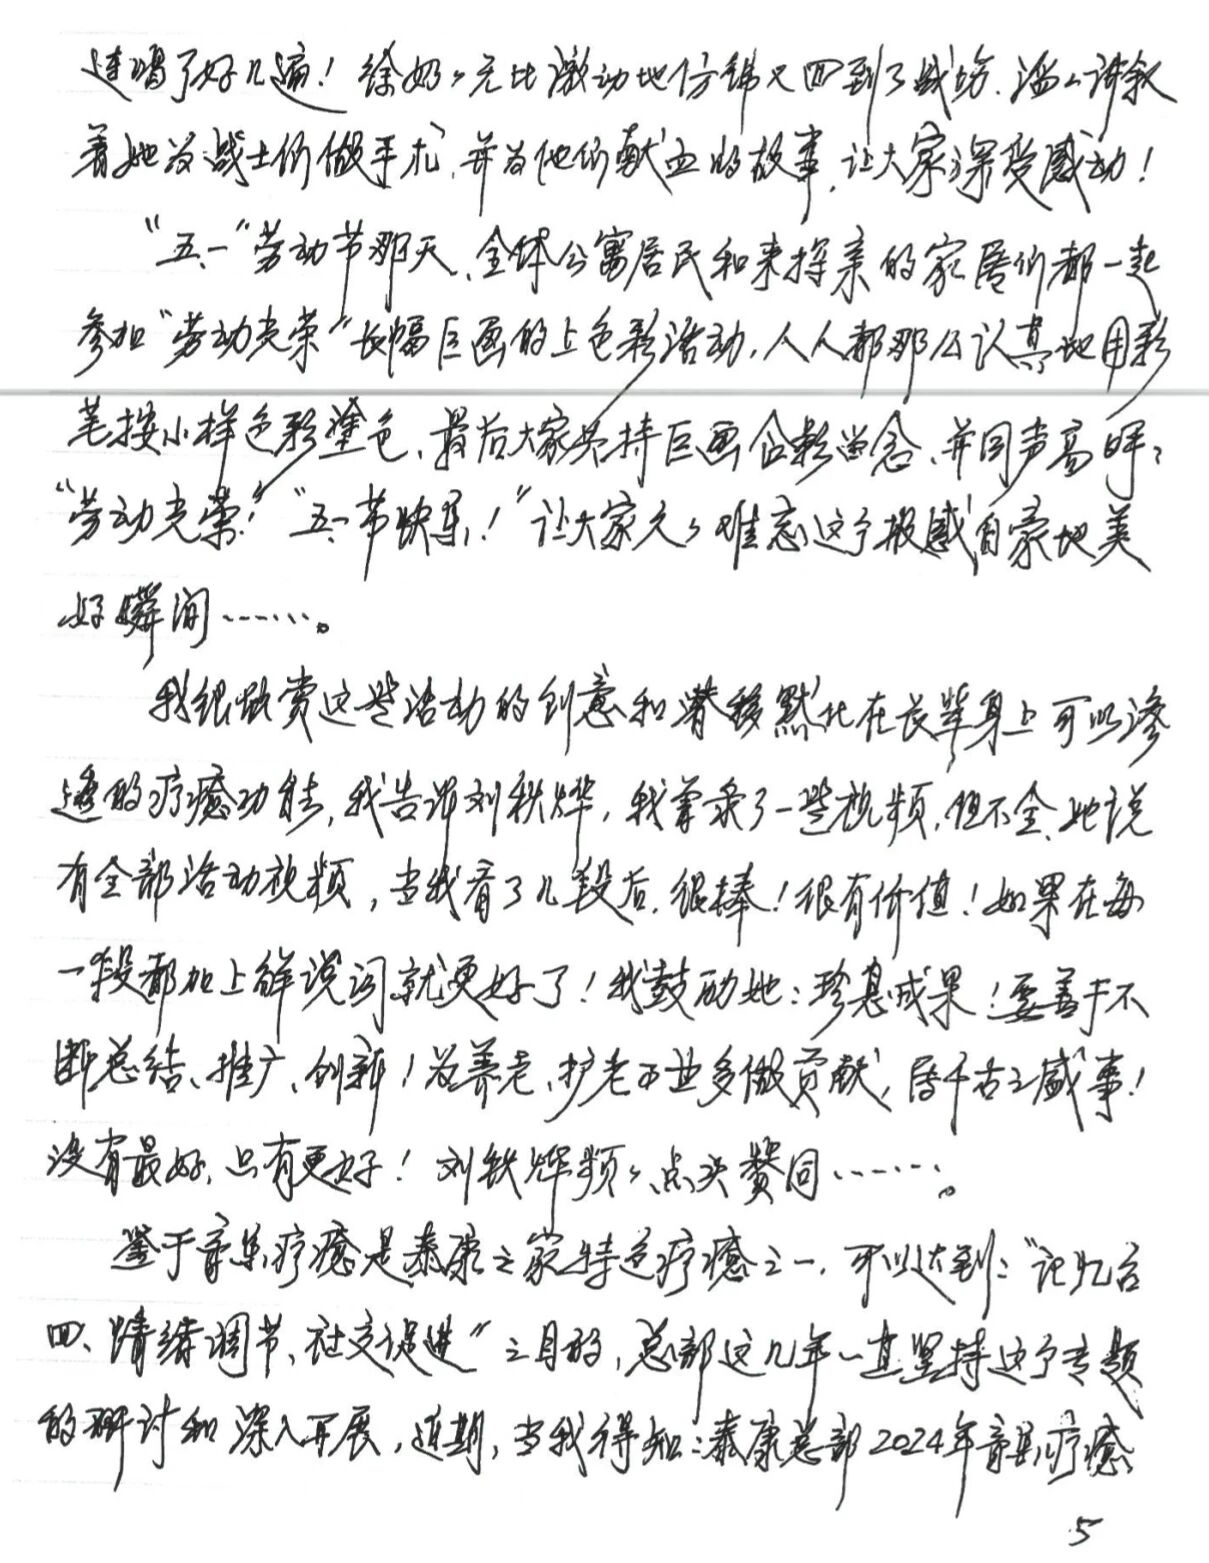 连唱了好几遍！徐奶々无比激动地仿佛又回到了战场.滔々讲叙
着她为战士们做手术,并为他们献血的故事,让大家深受感动！
"五.一"劳动节那天、全体公寓居民和来探亲的家居们都一起
参加"劳动光荣"长幅巨画的上色彩活动,人人都那么认真地用彩
笔按小样色彩塗色、最后大家共持巨画合影留念、并同声高呼：
"劳动光荣！""五一节快乐！"让大家久々难忘这个报感自豪地美
好瞬间……。
我很欣赏这些活动的创意和潜移默化在长辈身上可以渗
透的疗癒功能,我告诉刘轶烨,我拿录了一些视频,但不全、她说
有全部活动视频,当我看了几段后.很棒！很有价值！如果在每
一段都加上解说词就更好了！我鼓励她：珍惜成果！要善于不
断总结、推广、创新！为养老、护老事业多做贡献,属千古之盛事！
没有最好,只有更好！刘轶烨频々点头赞同……。
鉴于音乐疗癒是泰康之家特色疗癒之一,可以达到："记忆召
回、情绪调节、社交促进"之目的,总部这几年一直坚持这个专题
的研讨和深入开展,近期,当我得知：泰康总部2024年音乐疗癒
5